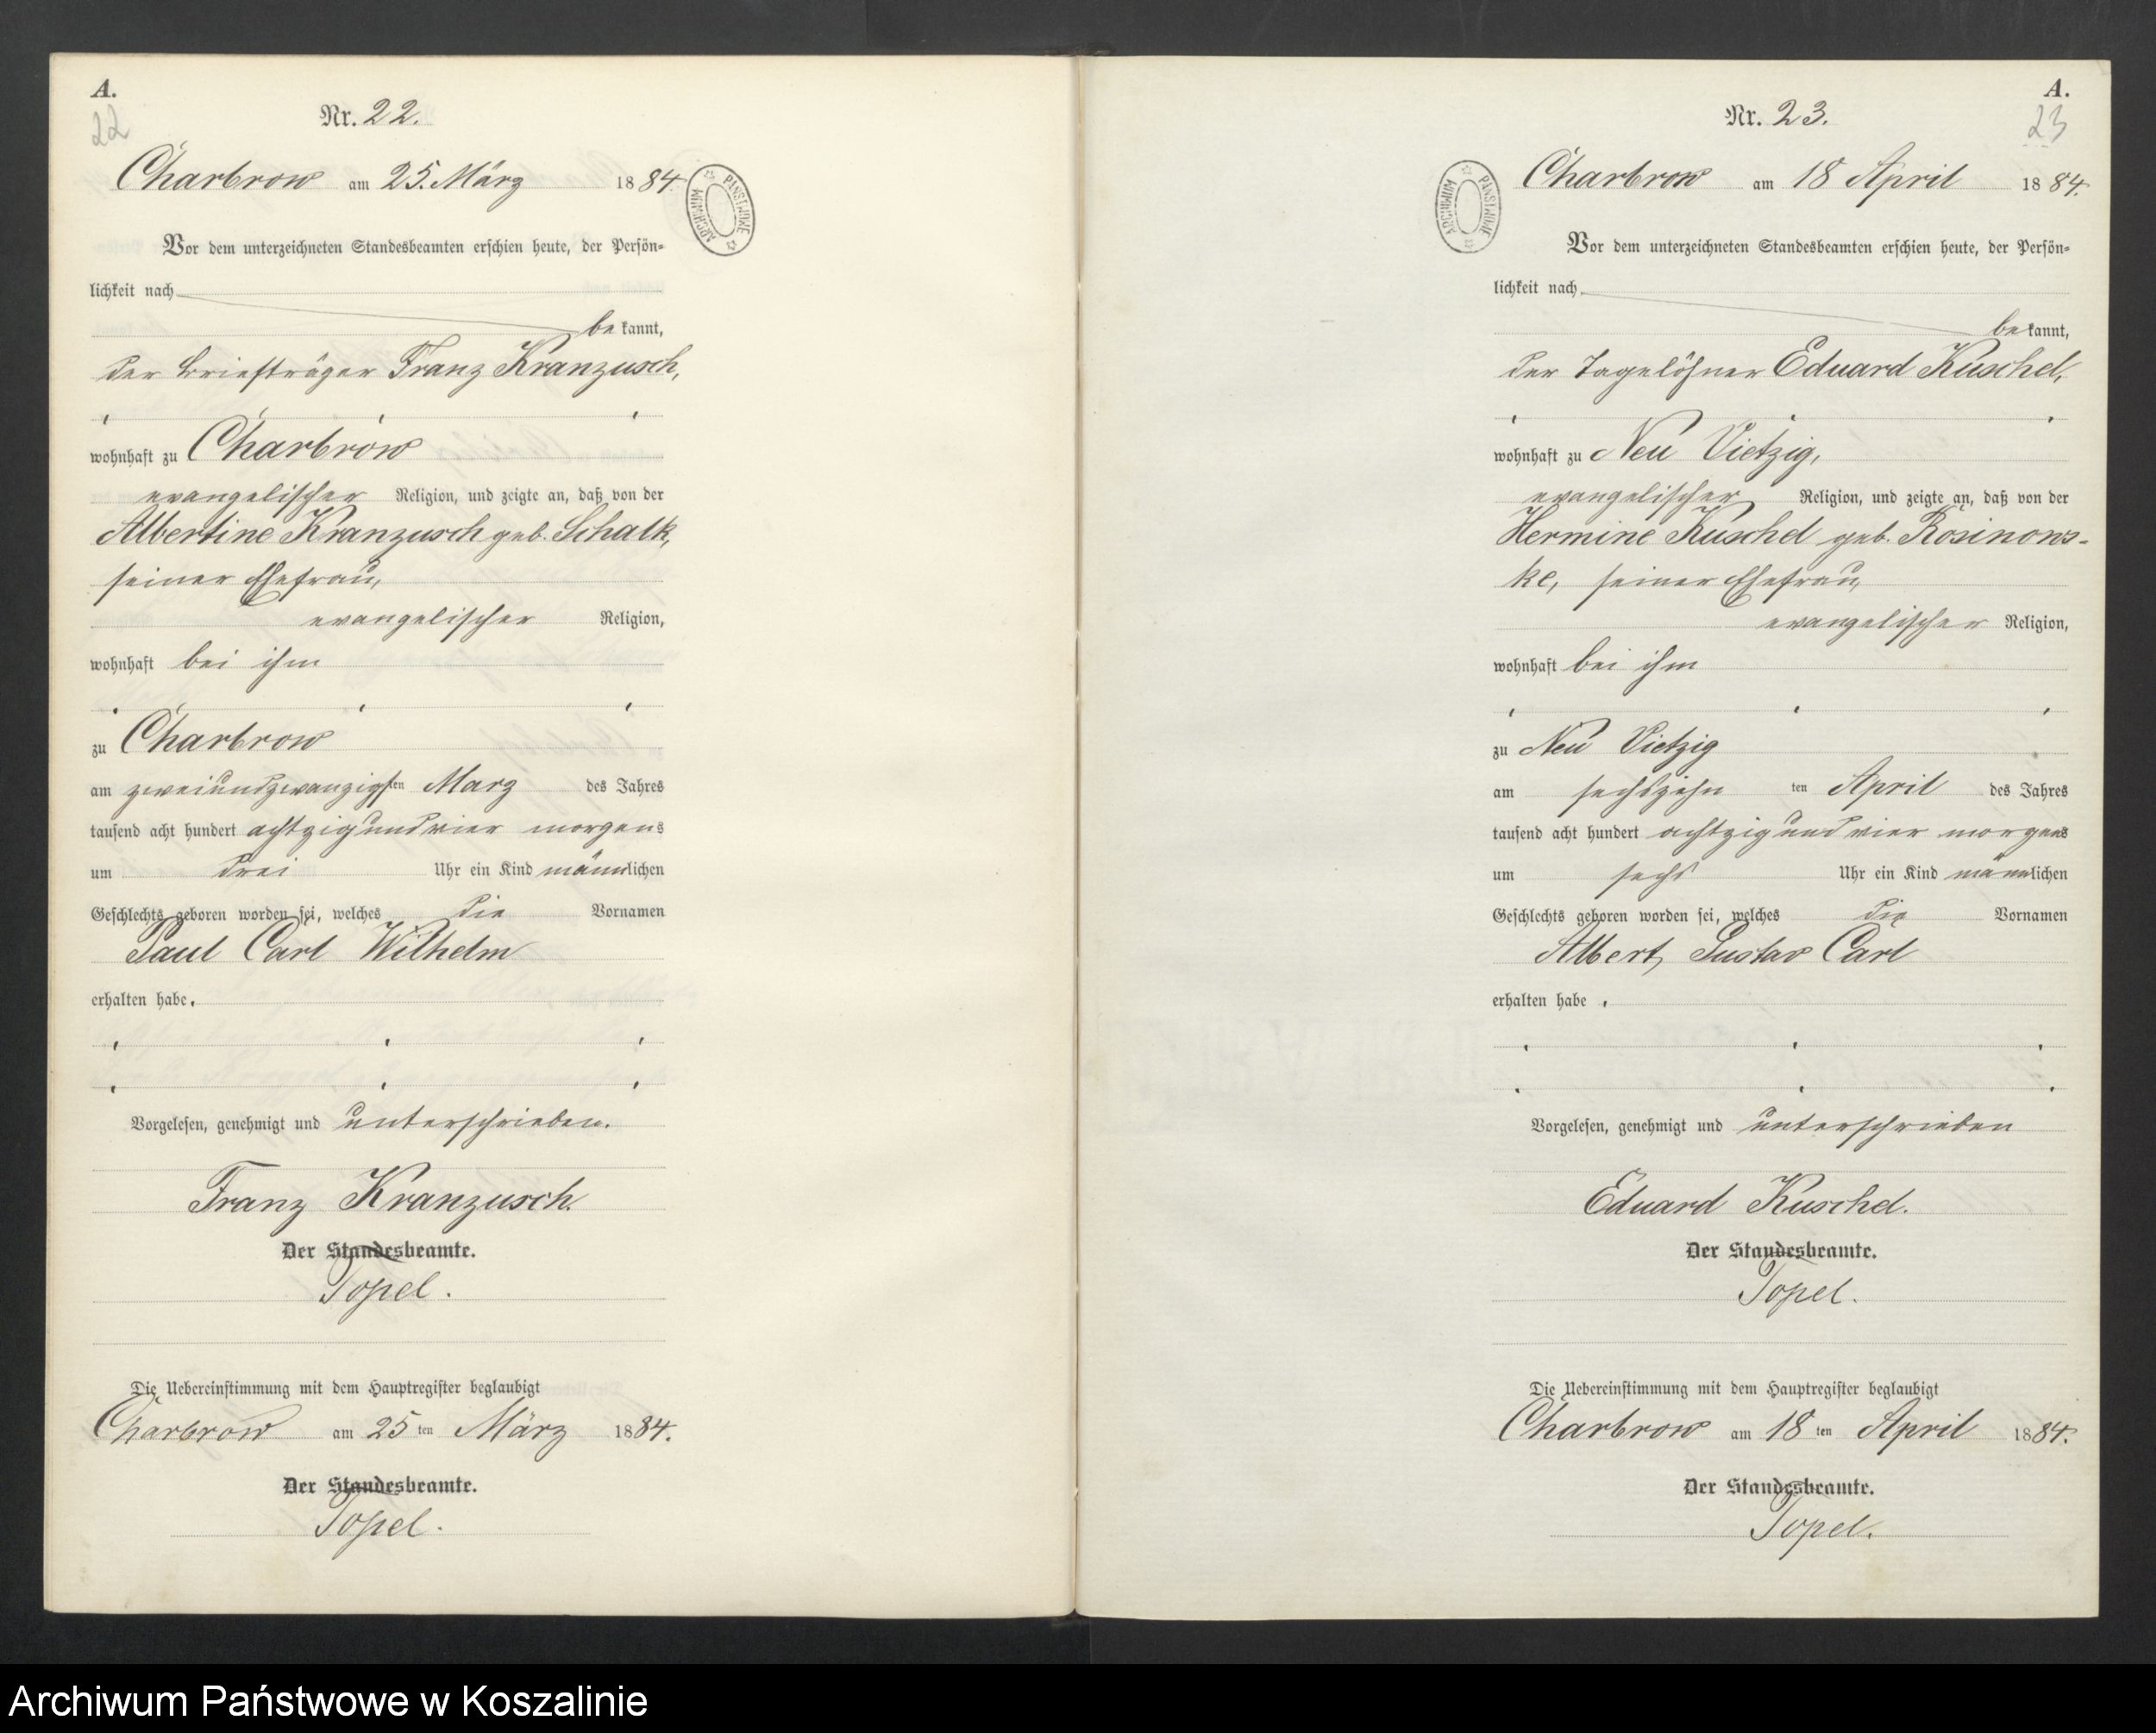 A.
22
Nr. 22.
Charbrow am 25. März 1884.
ARCHIWUM PAŃSTWOWE
Vor dem unterzeichneten Standesbeamten erschien heute, der Persön-
lichkeit nach
bekannt,
der Briefträger Franz Kranzusch,
wohnhaft zu Charbrow
evangelischer Religion, und zeigte an, daß von der
Albertine Kranzusch geb. Schalk,
seiner Ehefrau,
evangelischer Religion,
wohnhaft bei ihm
zu Charbrow
am zweiundzwanzigsten März des Jahres
tausend acht hundert achtzig und vier morgens
um drei Uhr ein Kind männlichen
Geschlechts geboren worden sei, welches die Vornamen
Paul Carl Wilhelm
erhalten habe.
Vorgelesen, genehmigt und unterschrieben.
Franz Kranzusch.
Der Standesbeamte.
Topel.
Die Uebereinstimmung mit dem Hauptregister beglaubigt
Charbrow am 25ten März 1884.
Der Standesbeamte.
Topel.
A.
23
Nr. 23.
Charbrow am 18 April 1884.
ARCHIWUM PAŃSTWOWE
Vor dem unterzeichneten Standesbeamten erschien heute, der Persön-
lichkeit nach
bekannt,
der Tagelöhner Eduard Kuschel,
wohnhaft zu Neu Vietzig,
evangelischer Religion, und zeigte an, daß von der
Hermine Kuschel geb. Rosinows-
ke, seiner Ehefrau,
evangelischer Religion,
wohnhaft bei ihm
zu Neu Vietzig
am sechszehn ten April des Jahres
tausend acht hundert achtzig und vier morgens
um sechs Uhr ein Kind männlichen
Geschlechts geboren worden sei, welches die Vornamen
Albert, Gustav Carl
erhalten habe.
Vorgelesen, genehmigt und unterschrieben
Eduard Kuschel.
Der Standesbeamte.
Topel.
Die Uebereinstimmung mit dem Hauptregister beglaubigt
Charbrow am 18 ten April 1884.
Der Standesbeamte.
Topel.
Archiwum Państwowe w Koszalinie